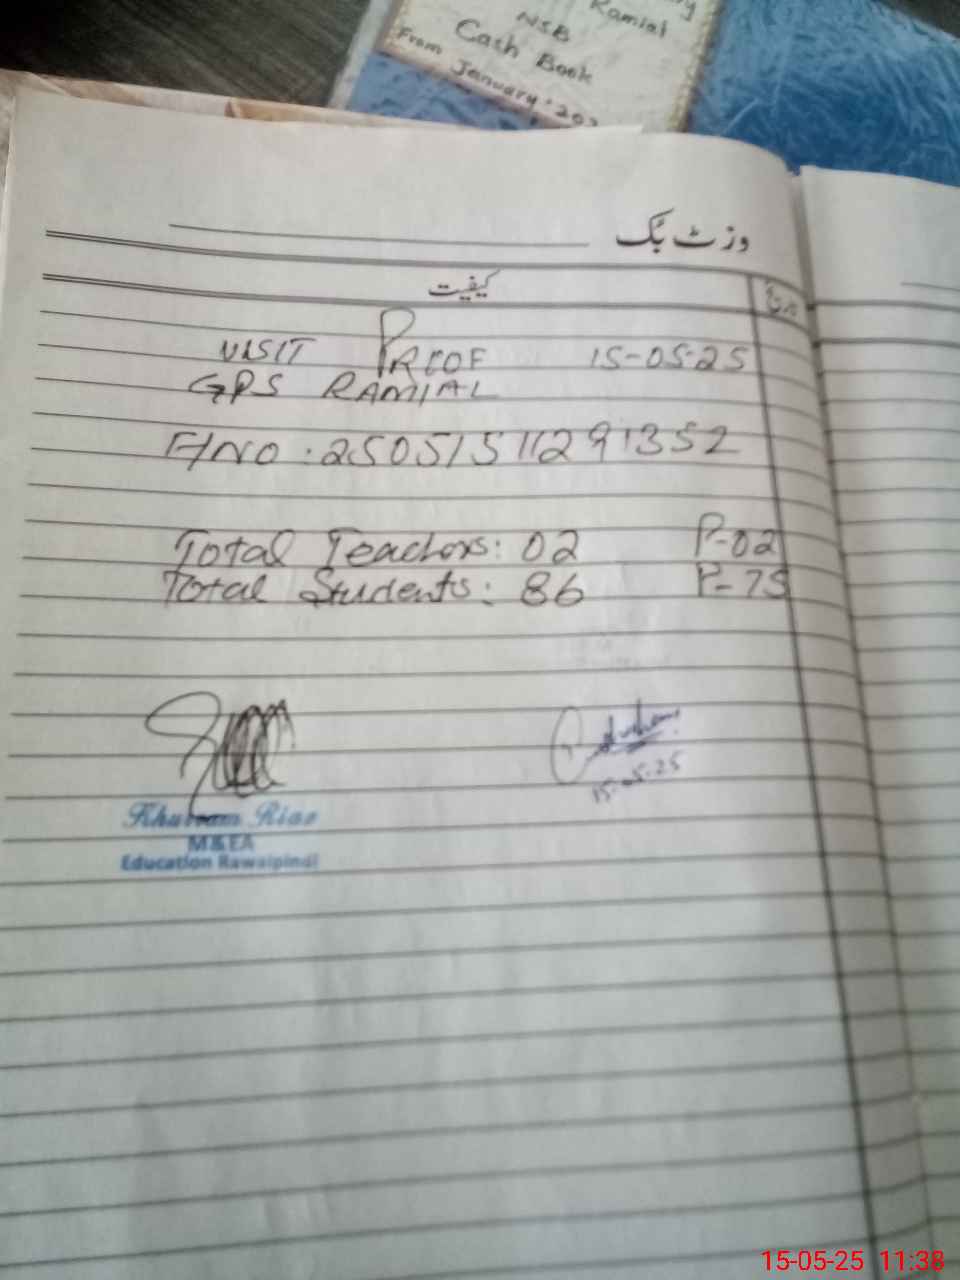 Ramial
NSB
Cash Book
From January
وزٹ بُک
کیفیت
VISIT PROOF 15-05-25
GPS RAMIAL
F/NO : 25051511291352
Total Teachers: 02 P-02
Total Students: 86 P-75
15-05-25
Khurram Riaz
M&EA
Education Rawalpindi
15-05-25 11:38